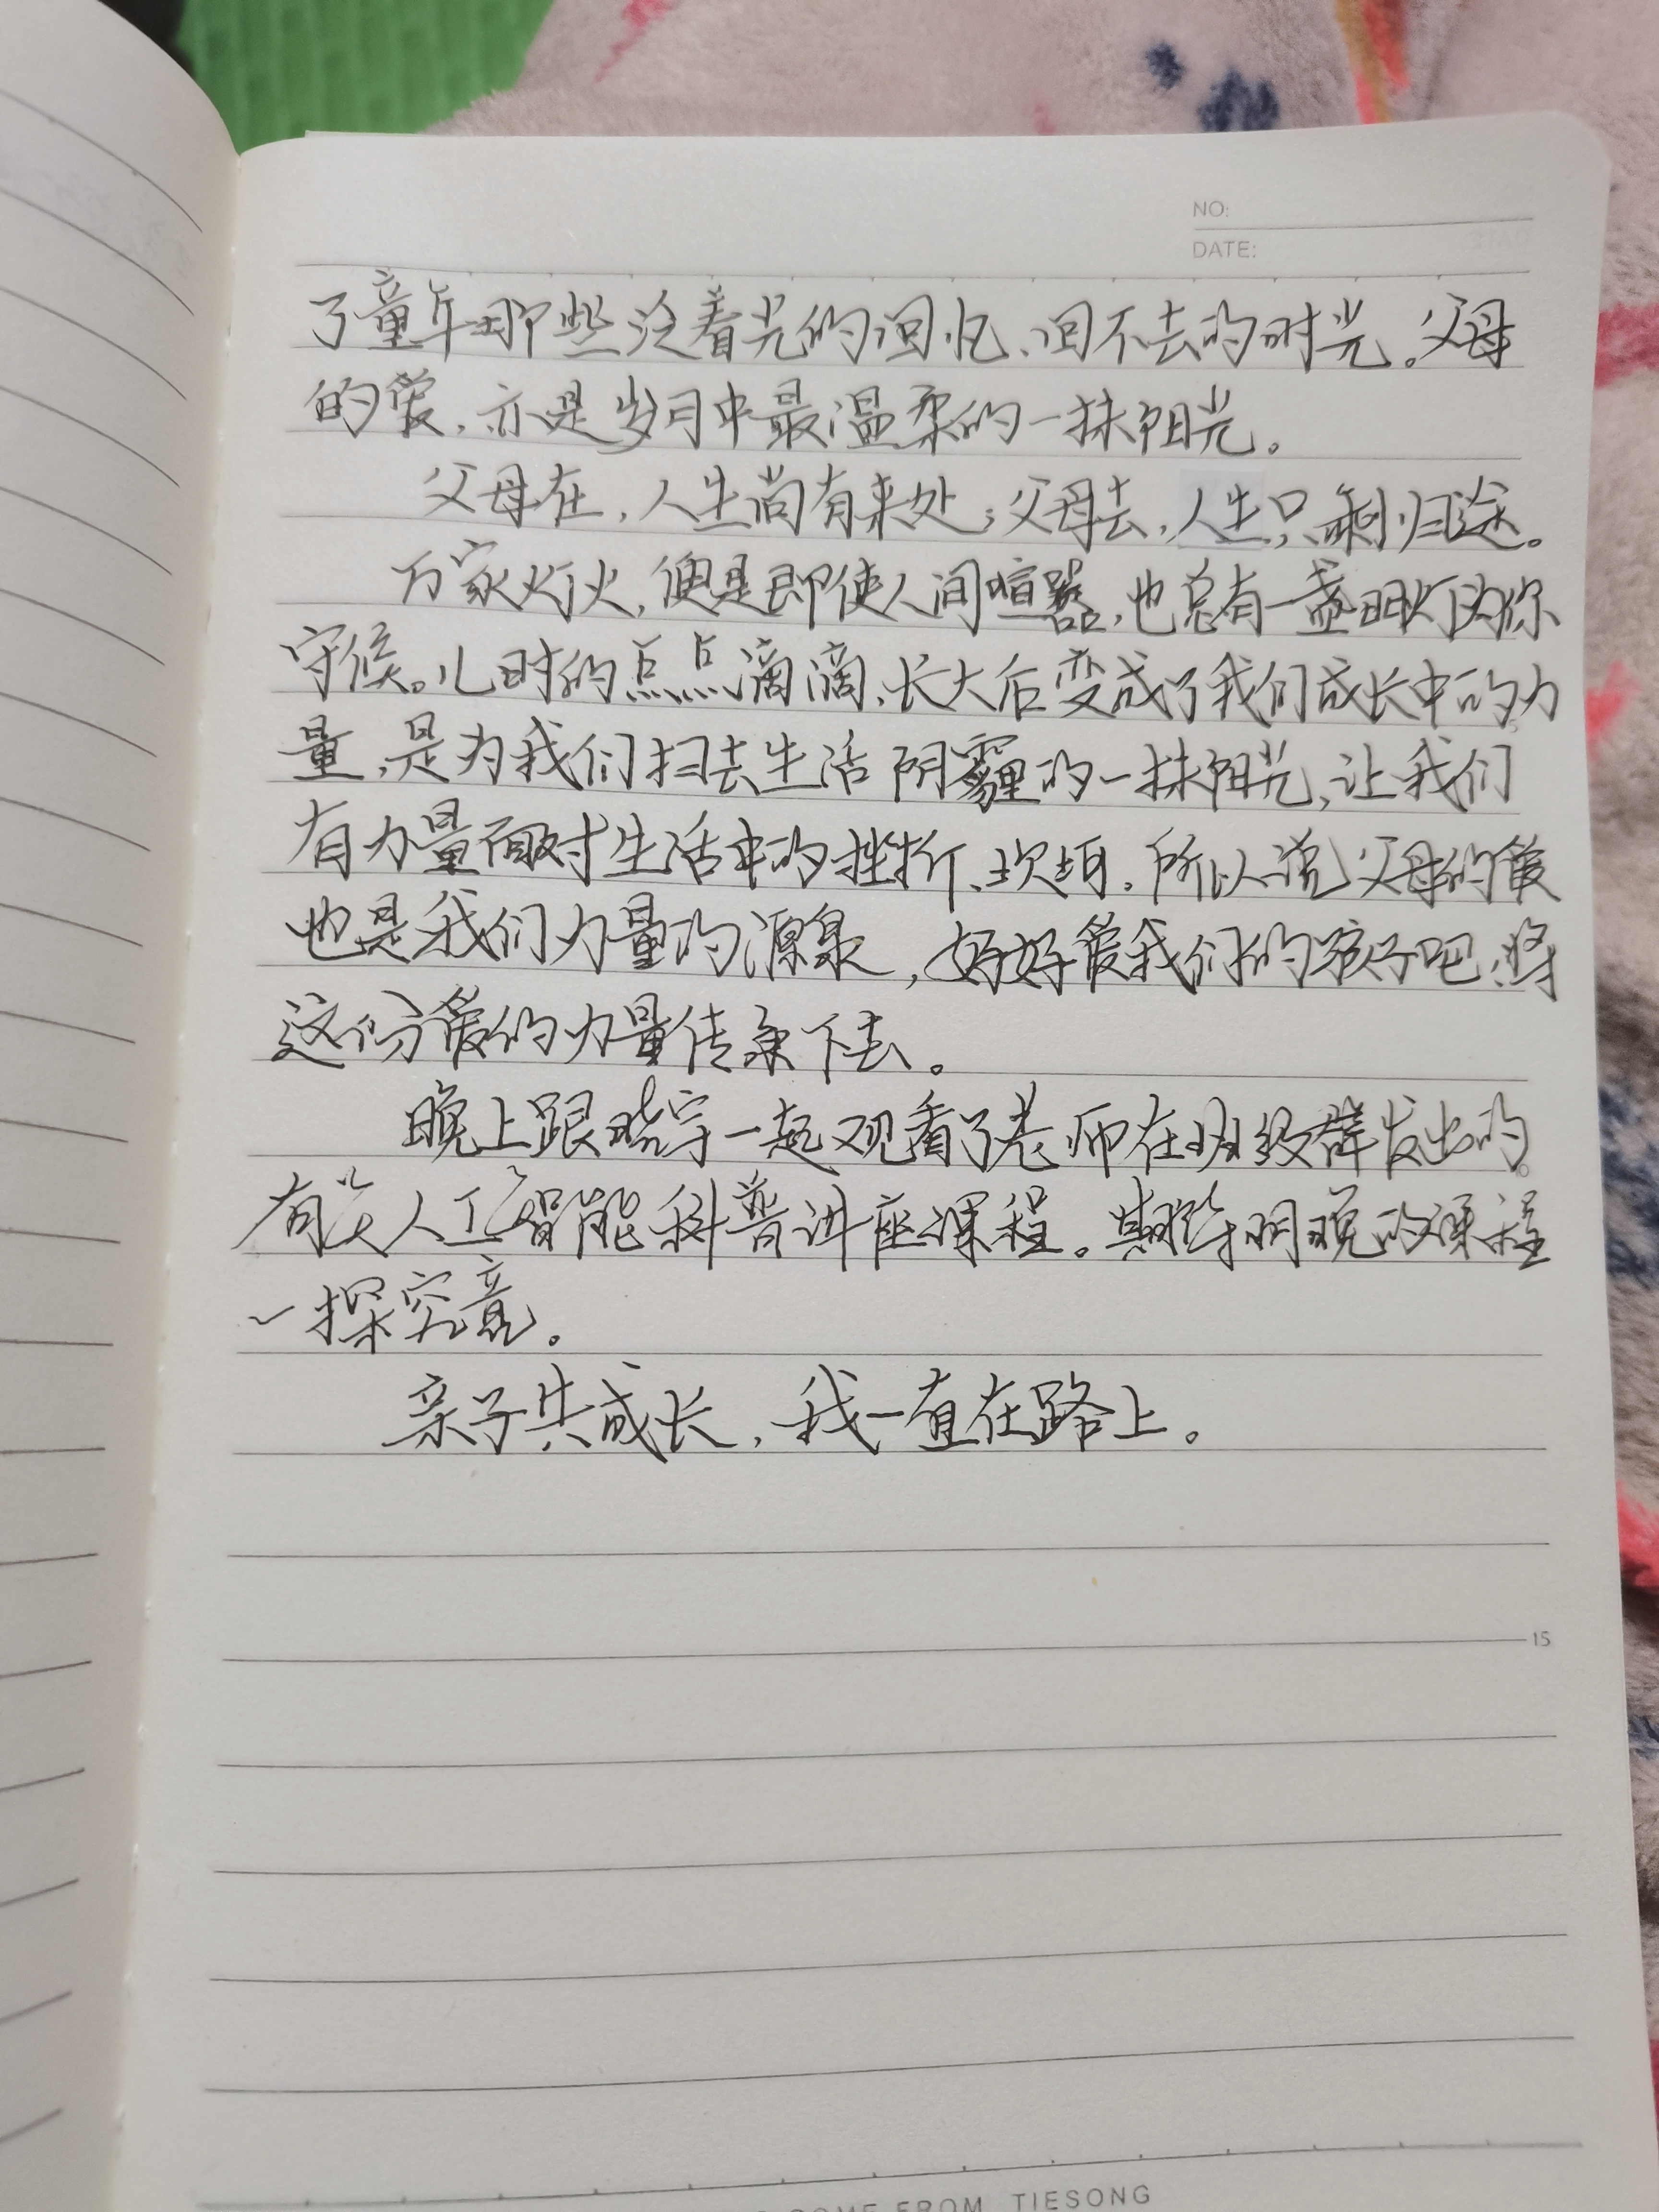 NO:
DATE:
了童年那些泛着光的回忆、回不去的时光。父母
的爱,亦是岁月中最温柔的一抹阳光。
父母在,人生尚有来处;父母去,人生只剩归途。
万家灯火,便是即使人间喧嚣,也总有一盏明灯为你
守候。儿时的点点滴滴,长大后变成了我们成长中的力
量,是为我们扫去生活阴霾的一抹阳光,让我们
有力量面对生活中的挫折、坎坷。所以说父母的爱
也是我们力量的源泉,好好爱我们的孩子吧,将
这份爱的力量传承下去。
晚上跟晓宇一起观看了老师在班级群发出的
有关人工智能科普讲座课程。期待明晚的课程
一探究竟。
亲子共成长,我一直在路上。
15
COME FROM TIESONG